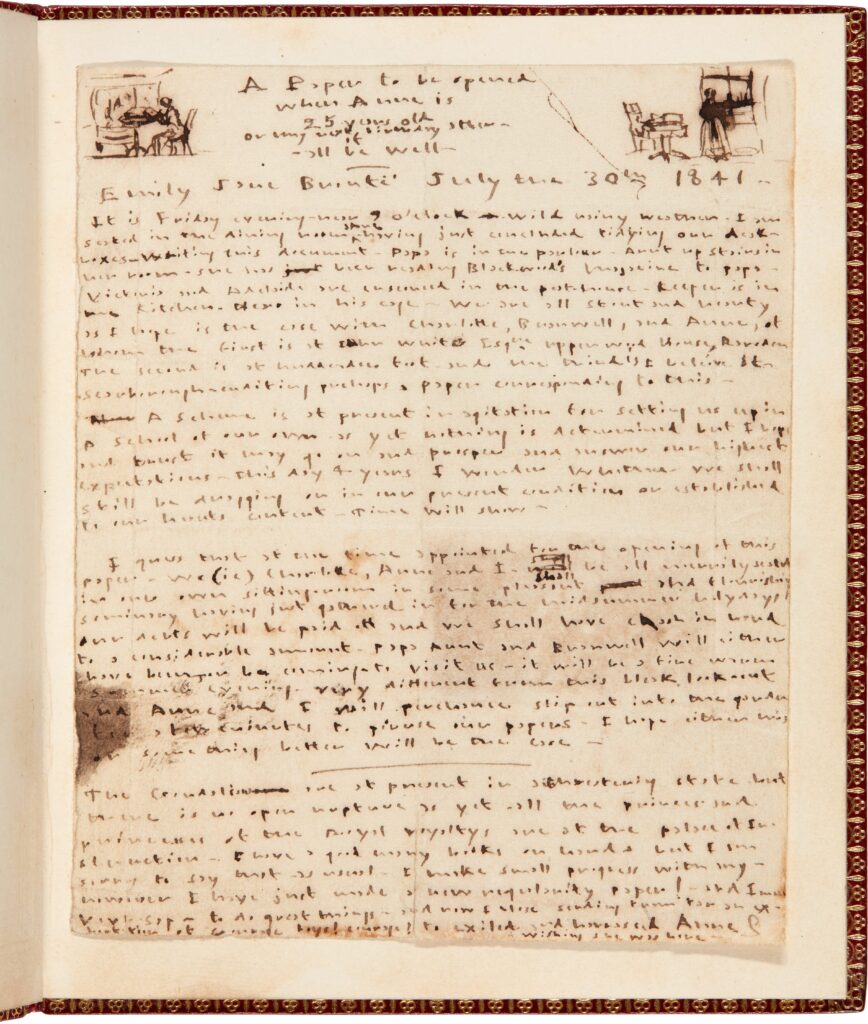 A Paper to be opened
when Anne is
25 years old
or my next birthday after—
if
—all be well—
Emily Jane Brontë July the 30th 1841—
It is Friday evening—near 9 o'clock—wild rainy weather. I am
seated in the dining room having just concluded tidying our desk-
boxes—writing this document—Papa is in the parlour. Aunt up stairs in
her room—she has just been reading Blackwood's Magazine to papa—
Victoria and Adelaide are ensconced in the peat-house—Keeper is in
the Kitchen—Hero in his cage—We are all stout and hearty
as I hope is the case with Charlotte, Branwell, and Anne, of
whom the first is at John White Esqre upperwood House, Rawden
The second is at Luddenden foot and the third is I beleive at—
Scarborough—enditing perhaps a paper corresponding to this—
A Scheme is at present in agitation for setting us up in
A School of our own as yet nothing is determined but I hope
and trust it may go on and prosper and answer our highest
expectations—This day 4-years I wonder whether we shall
still be dragging on in our present condition or established
to our hearts content—Time will show—
I guess that at the time appointed for the opening of this
paper—we (ie) Charlotte, Anne and I— shall be all merrily seated
in our own sitting-room in some pleasant and flourishing
seminary having just gathered in for the midsummer holydays
our debts will be paid off and we shall have cash in hand
to a considerable amount—papa Aunt and Branwell will either
have been or be coming to visit us—it will be a fine warm
evening—very different from this bleak look-out
and Anne and I will perchance slip out into the garden
a few minutes to peruse our papers—I hope either this
or something better will be the case—
The Gondalians are at present in a threatening state but
there is no open rupture as yet—all the princes and
princesses of the royal royaltys are at the palace of In-
struction—I have a good many books on hand but I am
sorry to say that as usual—I make small progress with any—
however I have just made a new regularity paper! and I
to do great things—and now I close sending from far an ex-
courage! to exiled and harassed Anne
wishing she was here